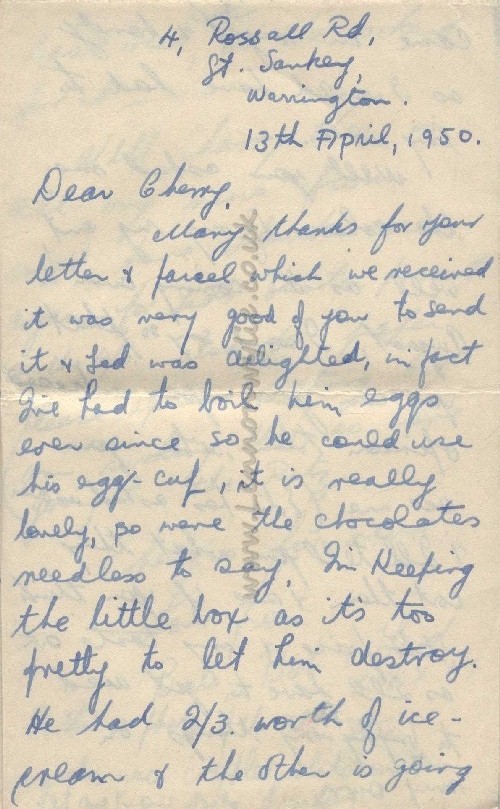 4, Rossall Rd,
Gt. Sankey,
Warrington.
13th April, 1950.
Dear Cherry,
Many thanks for your
letter & parcel which we received
it was very good of you to send
it & Ted was delighted, in fact
I've had to boil him eggs
ever since so he could use
his egg-cup, it is really
lovely, so were the chocolates
needless to say, I'm keeping
the little box as it's too
pretty to let him destroy.
He had 2/3. worth of ice-
cream & the other is going